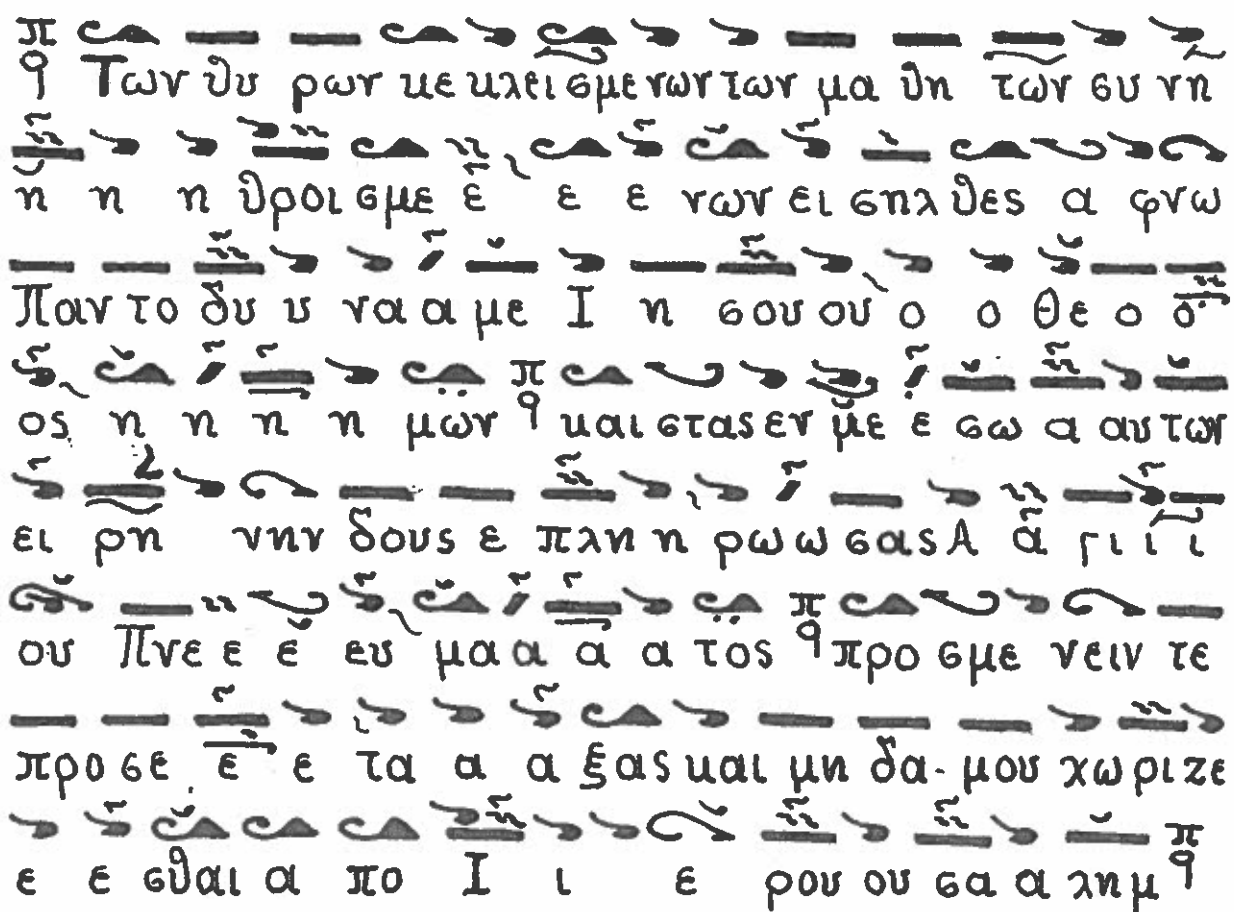 π
ϙ Των θυ ρων κε κλει σμε νων των μα θη των συ νη
η η η θροι σμε ε ε ε νων ει σηλ θες α φνω
Παν το δυ υ να α με Ι η σου ου ο ο Θε ο ο
ος η η η η μων π ϙ και στας εν με ε σω α αυ των
ει ρη νην δους ε πλη η ρω ω σας Α α γι ι ι
ου Πνε ε ε ευ μα α α α τος π ϙ προ σμε νειν τε
προ σε ε ε τα α α ξας και μη δα- μου χω ρι ζε
ε ε σθαι α πο Ι ι ε ρου ου σα α λημ π ϙ